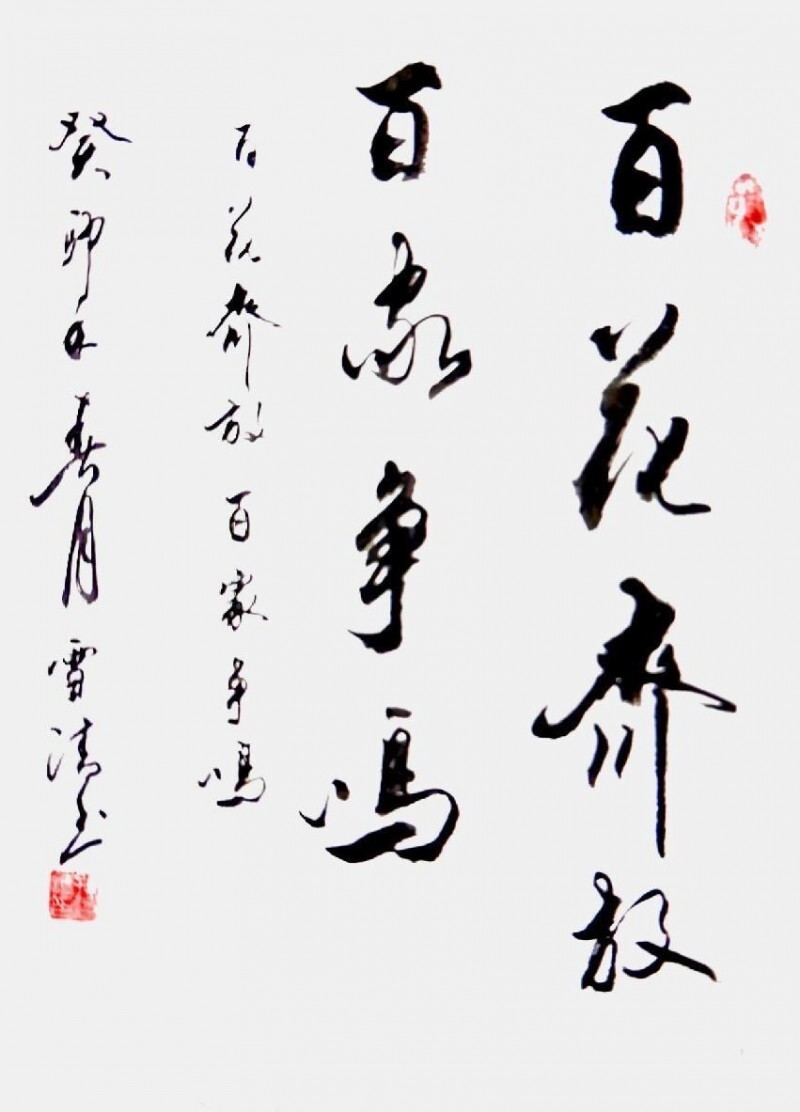 百花齊放
百家争鸣
百花齊放百家争鸣
癸卯年春月雪清书